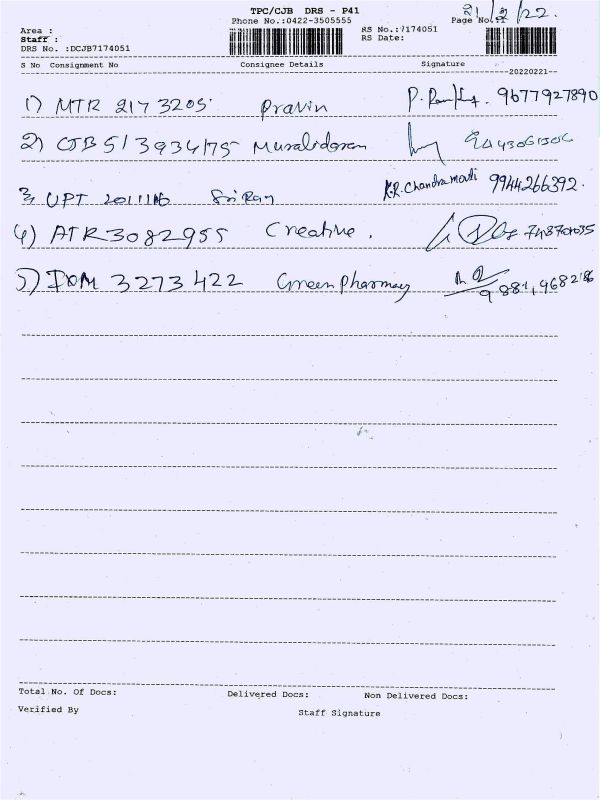 TPC/CJB DRS - P41 21/2/22.
Phone No.:0422-3505555 Page No.:
Area : RS No.:7174051
Staff : RS Date:
DRS No. :DCJB7174051
S No Consignment No Consignee Details Signature
20220221
1) MTR 2173205 Pravin 9677927890
2) CJB 513934175 Muralidaran
3, UPT 2011116 Sri Ram K.R. Chandramouli 9944266392.
4) ATR3082955 Creative.
5) IXM 3273422 Green Pharmacy
Total No. Of Docs: Delivered Docs: Non Delivered Docs:
Verified By Staff Signature